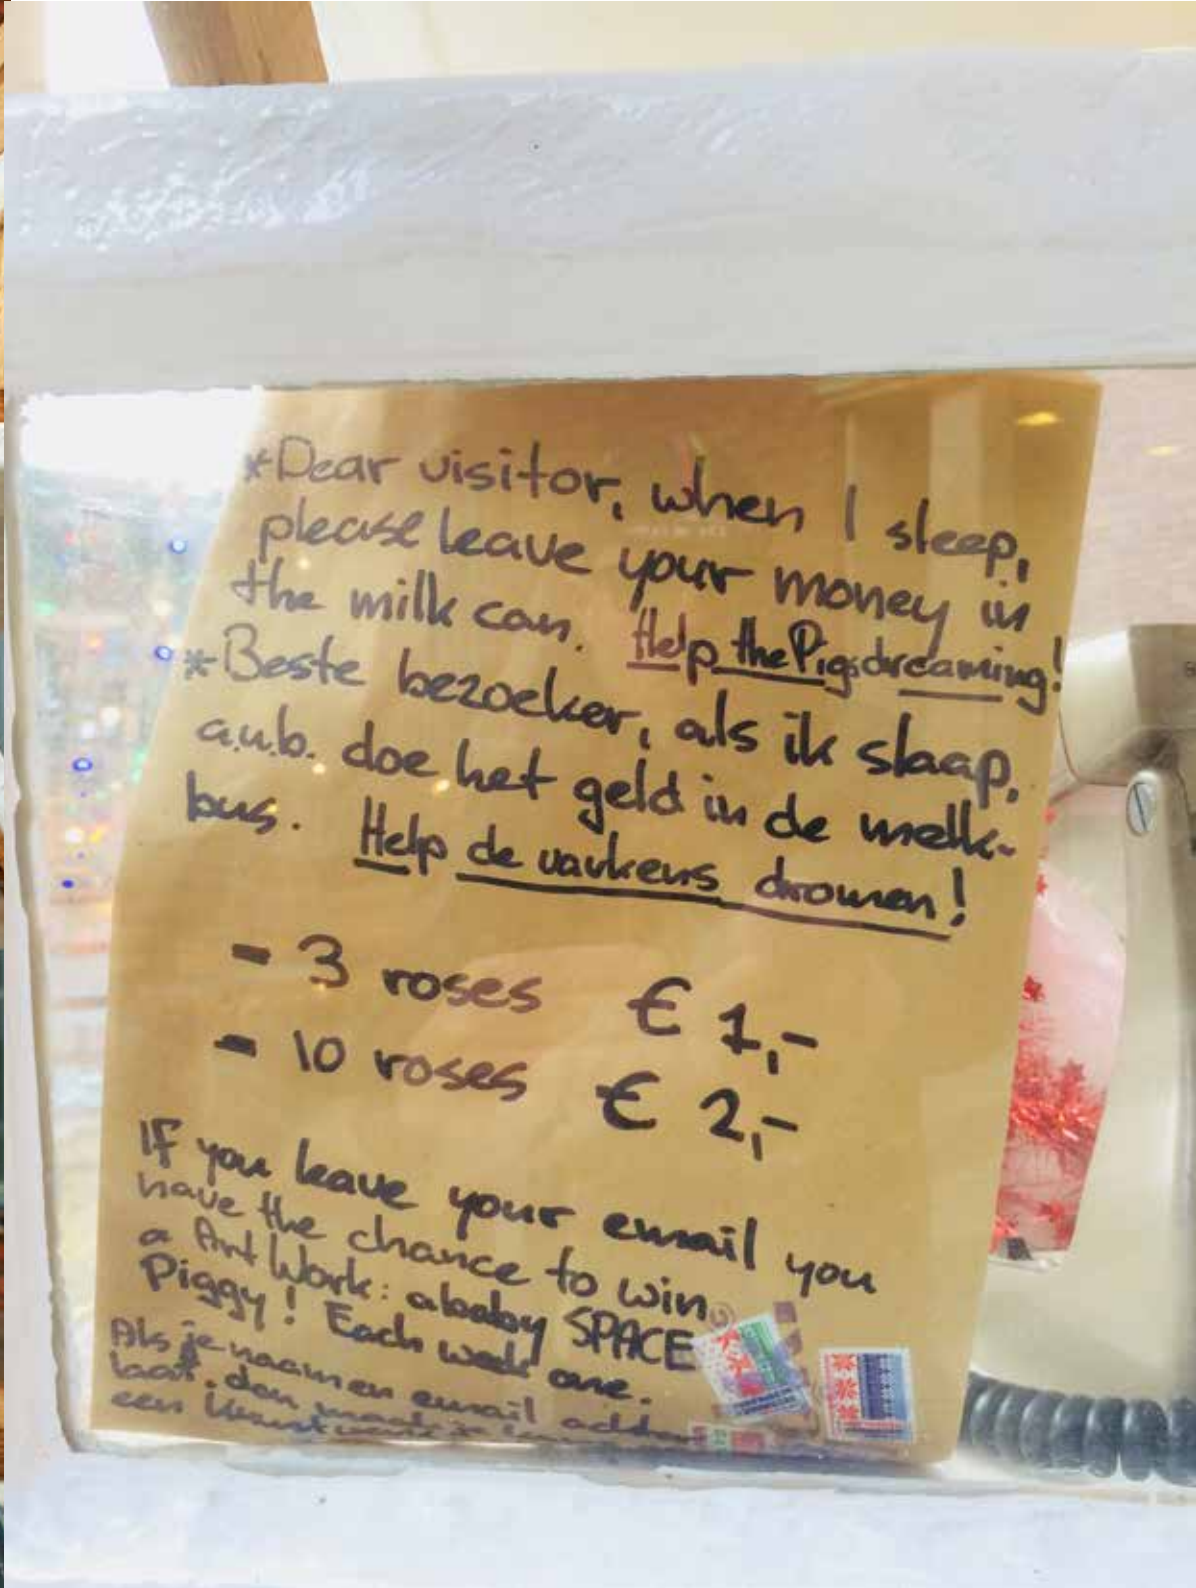 *Dear visitor, when I sleep,
please leave your money in
the milk can. Help the Pigs dreaming!
*Beste bezoeker, als ik slaap,
a.u.b. doe het geld in de melk-
bus. Help de varkens dromen!
- 3 roses € 1,-
- 10 roses € 2,-
IF you leave your email you
have the chance to win
a Art Work: a baby SPACE
Piggy! Each week one.
Als je naam en email
laat, dan maak je
een kunstwerk